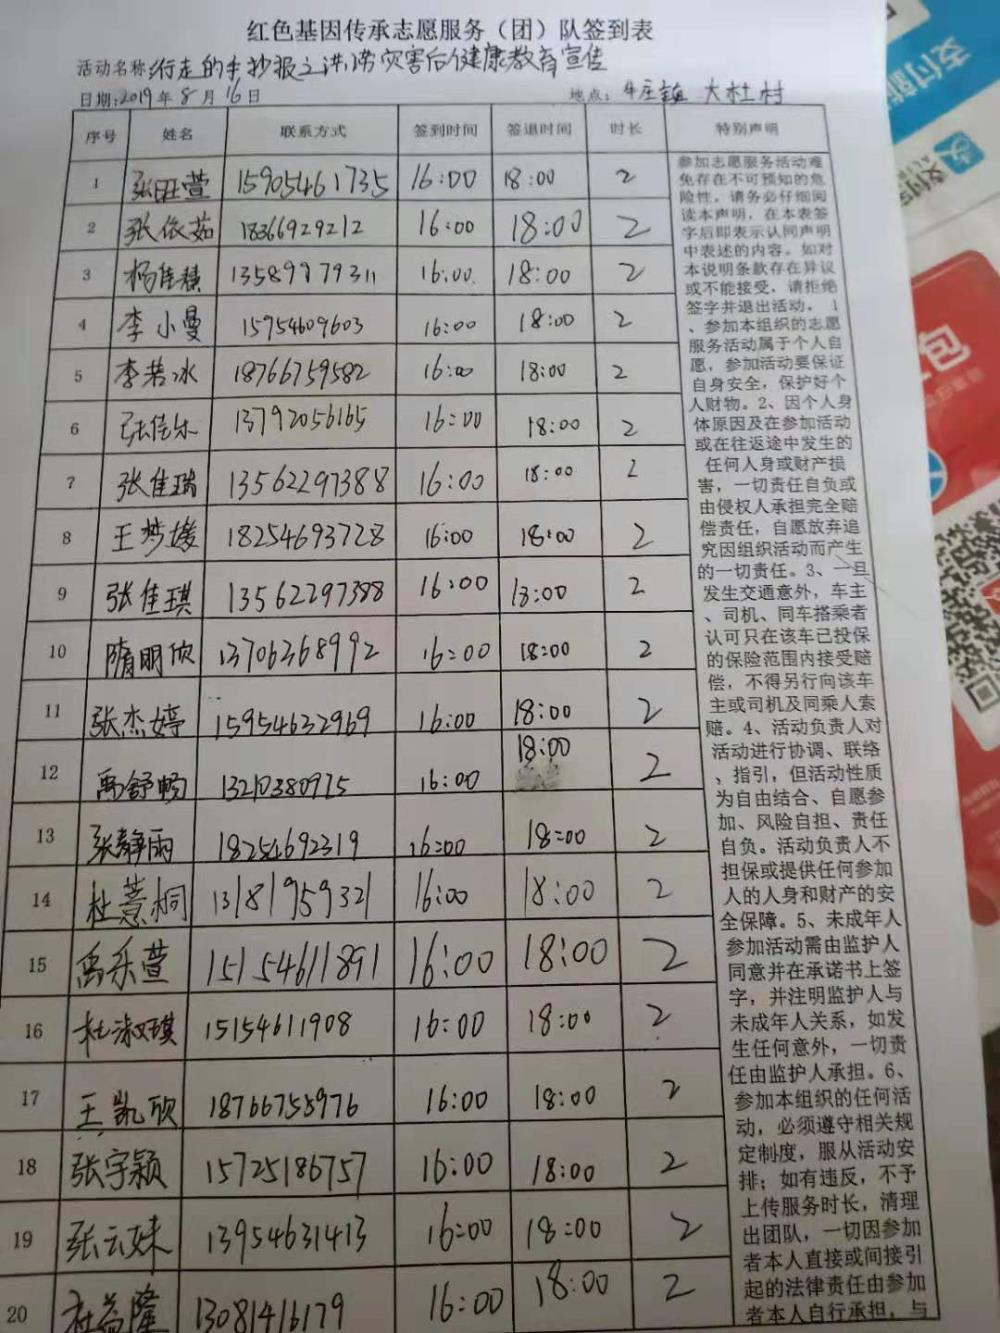 红色基因传承志愿服务（团）队签到表
活动名称:行走的手抄报之洪涝灾害后健康教育宣传
日期:2019年8月16日 地点:牛庄镇 大杜村
序号 姓名 联系方式 签到时间 签退时间 时长 特别声明
1 张旺萱 15905461735 16:00 18:00 2
2 张依茹 18366929212 16:00 18:00 2
3 杨佳穗 13589979311 16:00 18:00 2
4 李小曼 15954609603 16:00 18:00 2
5 李若冰 18766759582 16:00 18:00 2
6 张佳乐 13792056165 16:00 18:00 2
7 张佳瑞 13562297388 16:00 18:00 2
8 王梦媛 18254693728 16:00 18:00 2
9 张佳琪 13562297388 16:00 18:00 2
10 隋明欣 13706368992 16:00 18:00 2
11 张杰婷 15954632969 16:00 18:00 2
12 禹舒畅 13210380975 16:00 18:00 2
13 张静雨 18254692319 16:00 18:00 2
14 杜薏桐 13181959321 16:00 18:00 2
15 禹乐萱 15154611891 16:00 18:00 2
16 杜淑琪 15154611908 16:00 18:00 2
17 王凯欣 18766755976 16:00 18:00 2
18 张宇颖 15725186757 16:00 18:00 2
19 张云妹 13954631413 16:00 18:00 2
20 杜益隆 13081416179 16:00 18:00 2
参加志愿服务活动难
免存在不可预知的危
险性，请务必仔细阅
读本声明，在本表签
字后即表示认同声明
中表述的内容。如对
本说明条款存在异议
或不能接受，请拒绝
签字并退出活动。1
、参加本组织的志愿
服务活动属于个人自
愿，参加活动要保证
自身安全，保护好个
人财物。2、因个人身
体原因及在参加活动
或在往返途中发生的
任何人身或财产损
害，一切责任自负或
由侵权人承担完全赔
偿责任，自愿放弃追
究因组织活动而产生
的一切责任。3、一旦
发生交通意外，车主
、司机、同车搭乘者
认可只在该车已投保
的保险范围内接受赔
偿，不得另行向该车
主或司机及同乘人索
赔。4、活动负责人对
活动进行协调、联络
、指引，但活动性质
为自由结合、自愿参
加、风险自担、责任
自负。活动负责人不
担保或提供任何参加
人的人身和财产的安
全保障。5、未成年人
参加活动需由监护人
同意并在承诺书上签
字，并注明监护人与
未成年人关系，如发
生任何意外，一切责
任由监护人承担。6、
参加本组织的任何活
动，必须遵守相关规
定制度，服从活动安
排；如有违反，不予
上传服务时长，清理
出团队，一切因参加
者本人直接或间接引
起的法律责任由参加
者本人自行承担，与
支付
包